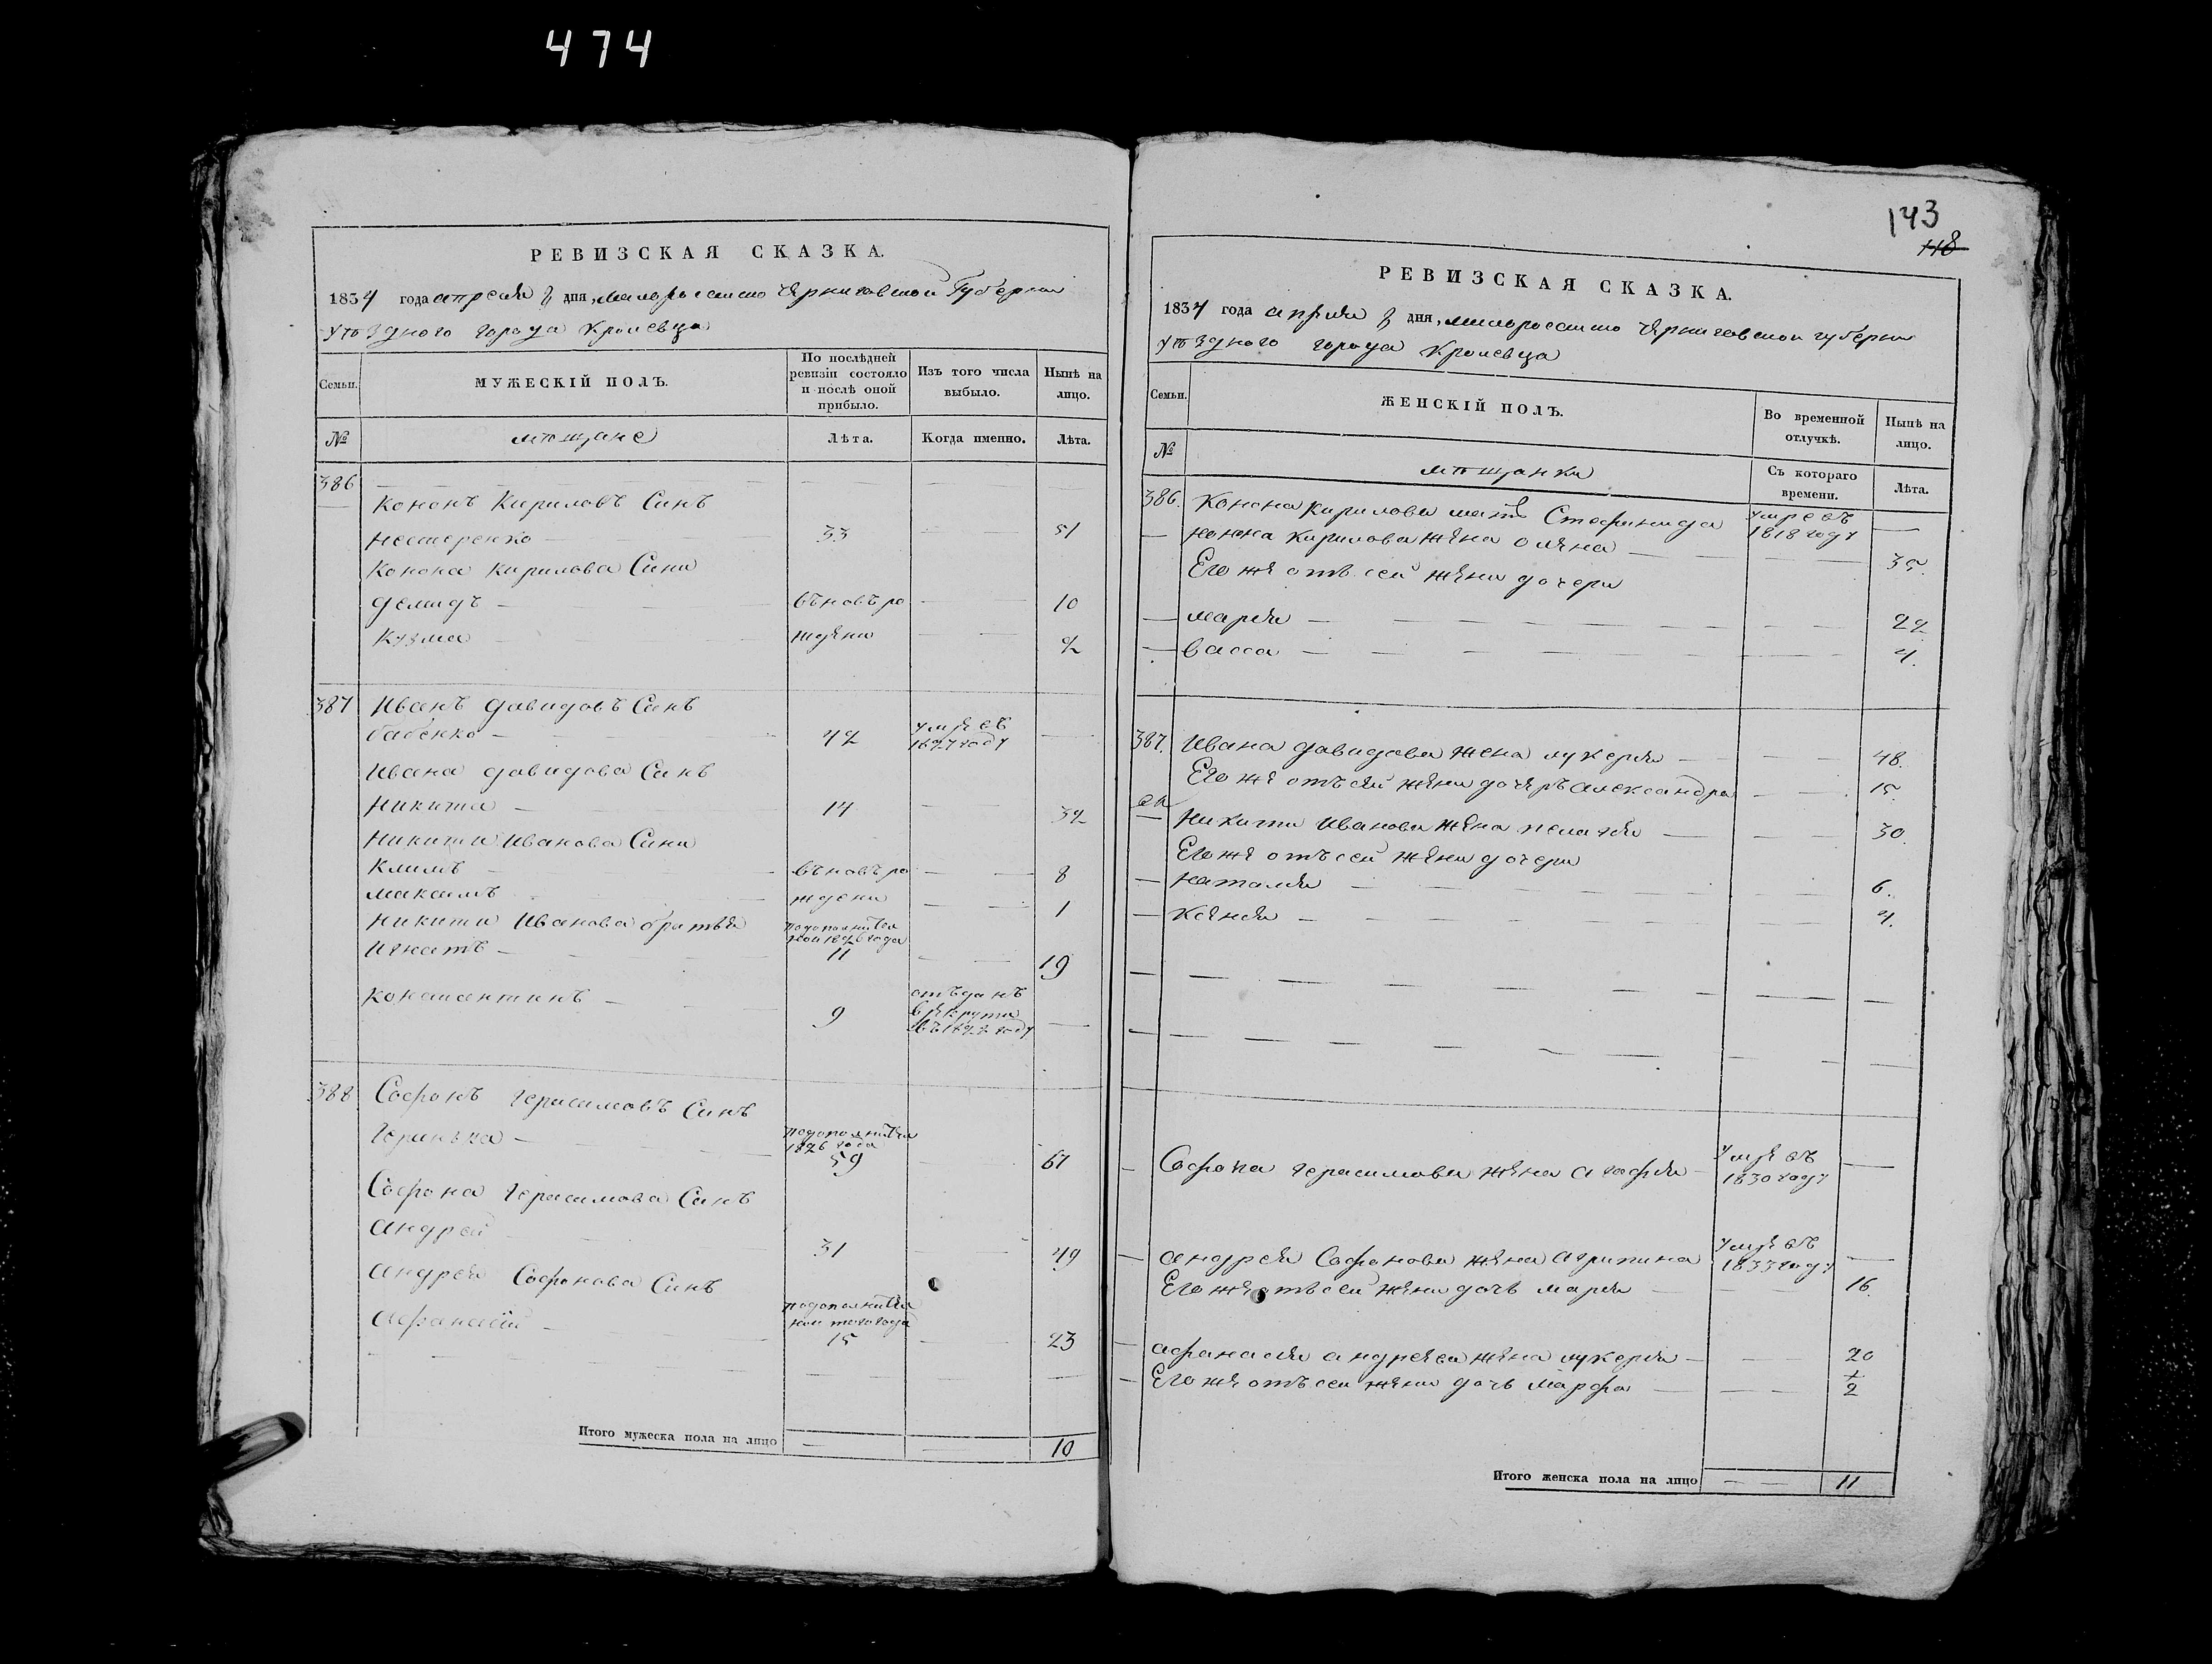 474
РЕВИЗСКАЯ СКАЗКА.
1834 года апреля дня, малоросийско Черниговской Губернии
уѣздного города Кролевца
Семьи.
МУЖЕСКІЙ ПОЛЪ.
По послѣдней ревизіи состояло и послѣ оной прибыло.
Изъ того числа выбыло.
Нынѣ на лицо.
№
мѣщане
Лѣта.
Когда именно.
Лѣта.
386
Кононъ Кириловъ Синъ
Нестеренко 33 51
Конона Кирилова Сини
Демидъ въновъ ро 10
Кузма ждени 2
387 Иванъ Давидовъ Синъ
бабенко 42 умре въ 1827 году
Ивана Давидова Синъ
Никита 14 32
Никити Иванова Сини
Климъ въновъ ро 8
Максимъ ждени 1
Никити Иванова братья
Игнатъ 11 19
Константинъ 9 отъданъ
388 Софонъ Герасимовъ Синъ
1826 года
59 67
Софона Герасимова Синъ
Андрей 31 49
Андрея Софонова Синъ
Афанасій 15 23
Итого мужеска пола на лицо 10
143
118
РЕВИЗСКАЯ СКАЗКА.
1834 года апреля дня, малоросийско Черниговской губернии
уѣздного города Кролевца
Семьи.
ЖЕНСКІЙ ПОЛЪ.
Во временной отлучкѣ.
Нынѣ на лицо.
№
мѣщанки
Съ котораго времени.
Лѣта.
386. Конона Кирилова мать умре въ 1818 году
Конона Кирилова жена Олена 35.
Его же отъ сей жени дочери
Марія 22
Васса 4.
387. Ивана Давидова жена Лукерія 48.
Его же отъ сей жени дочеръ Александра 15.
Никити Иванова жена Пелагея 30.
Его же отъ сей жени дочери
Наталія 6.
Ксенія 4.
Софона Герасимова жена Агафія умре въ 1830 году
Андрея Софонова жена Агрипина умре въ 1833 году
Его же отъ сей жени дочь Марія 16.
Афанасія Андреева жена Лукерія 20
Его же отъ сей жени дочь Марфа 2
Итого женска пола на лицо 11